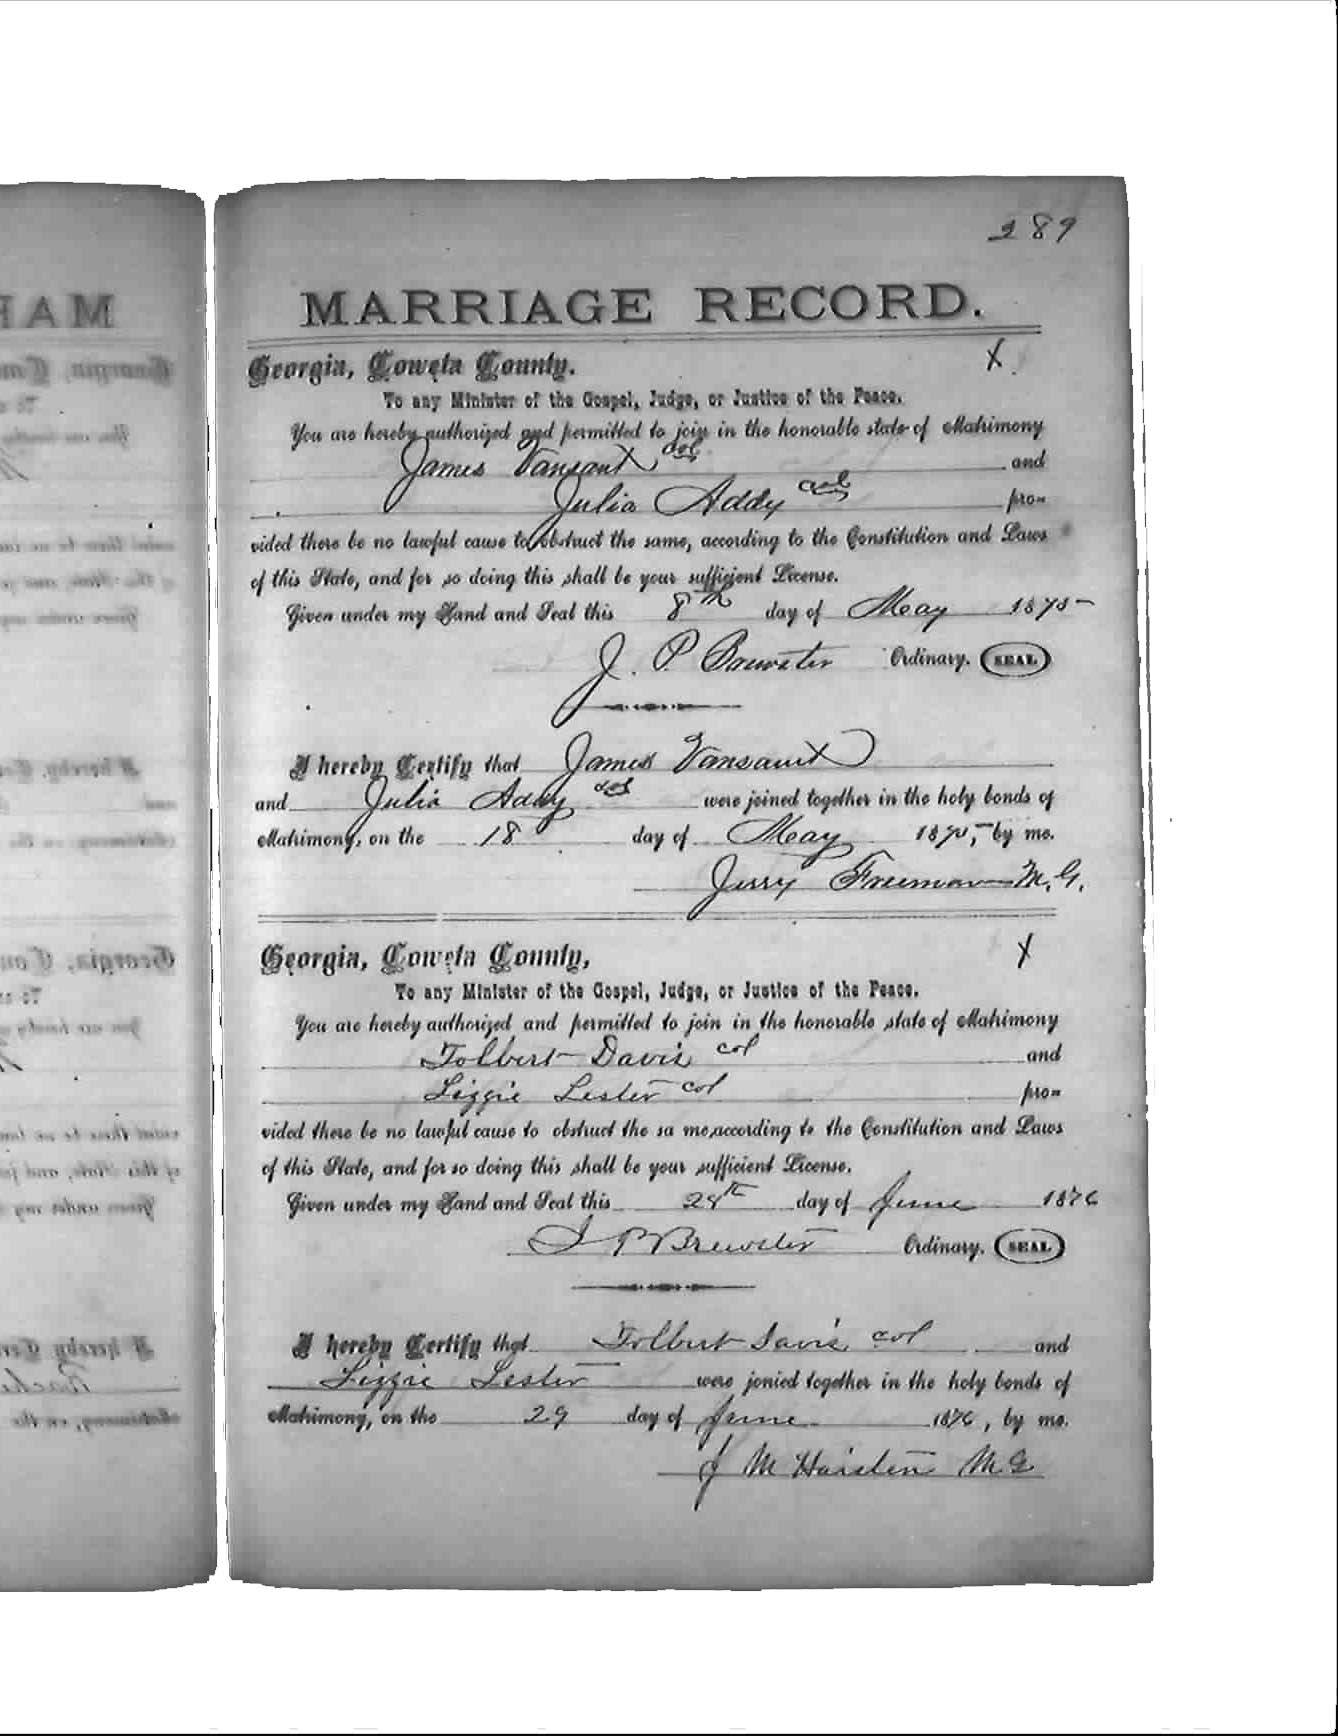 289
MARRIAGE RECORD.
Georgia, Coweta County.
X
To any Minister of the Gospel, Judge, or Justice of the Peace.
You are hereby authorized and permitted to join in the honorable state of Matrimony
James Vansant col and
Julia Addy col pro-
vided there be no lawful cause to obstruct the same, according to the Constitution and Laws
of this State, and for so doing this shall be your sufficient License.
Given under my Hand and Seal this 8th day of May 1875
J. P. Brewster Ordinary. SEAL
I hereby Certify that James Vansant
and Julia Addy col were joined together in the holy bonds of
Matrimony, on the 18 day of May 1875, by me.
Jerry Freeman M. G.
Georgia, Coweta County,
X
To any Minister of the Gospel, Judge, or Justice of the Peace.
You are hereby authorized and permitted to join in the honorable state of Matrimony
Tolbert Davis col and
Lizzie Lester col pro-
vided there be no lawful cause to obstruct the sa me,according to the Constitution and Laws
of this State, and for so doing this shall be your sufficient License.
Given under my Hand and Seal this 28th day of June 1876
J P Brewster Ordinary. SEAL
I hereby Certify that Tolbert Davis col and
Lizzie Lester were jonied together in the holy bonds of
Matrimony, on the 29 day of June 1876, by me.
J M Haisten M G